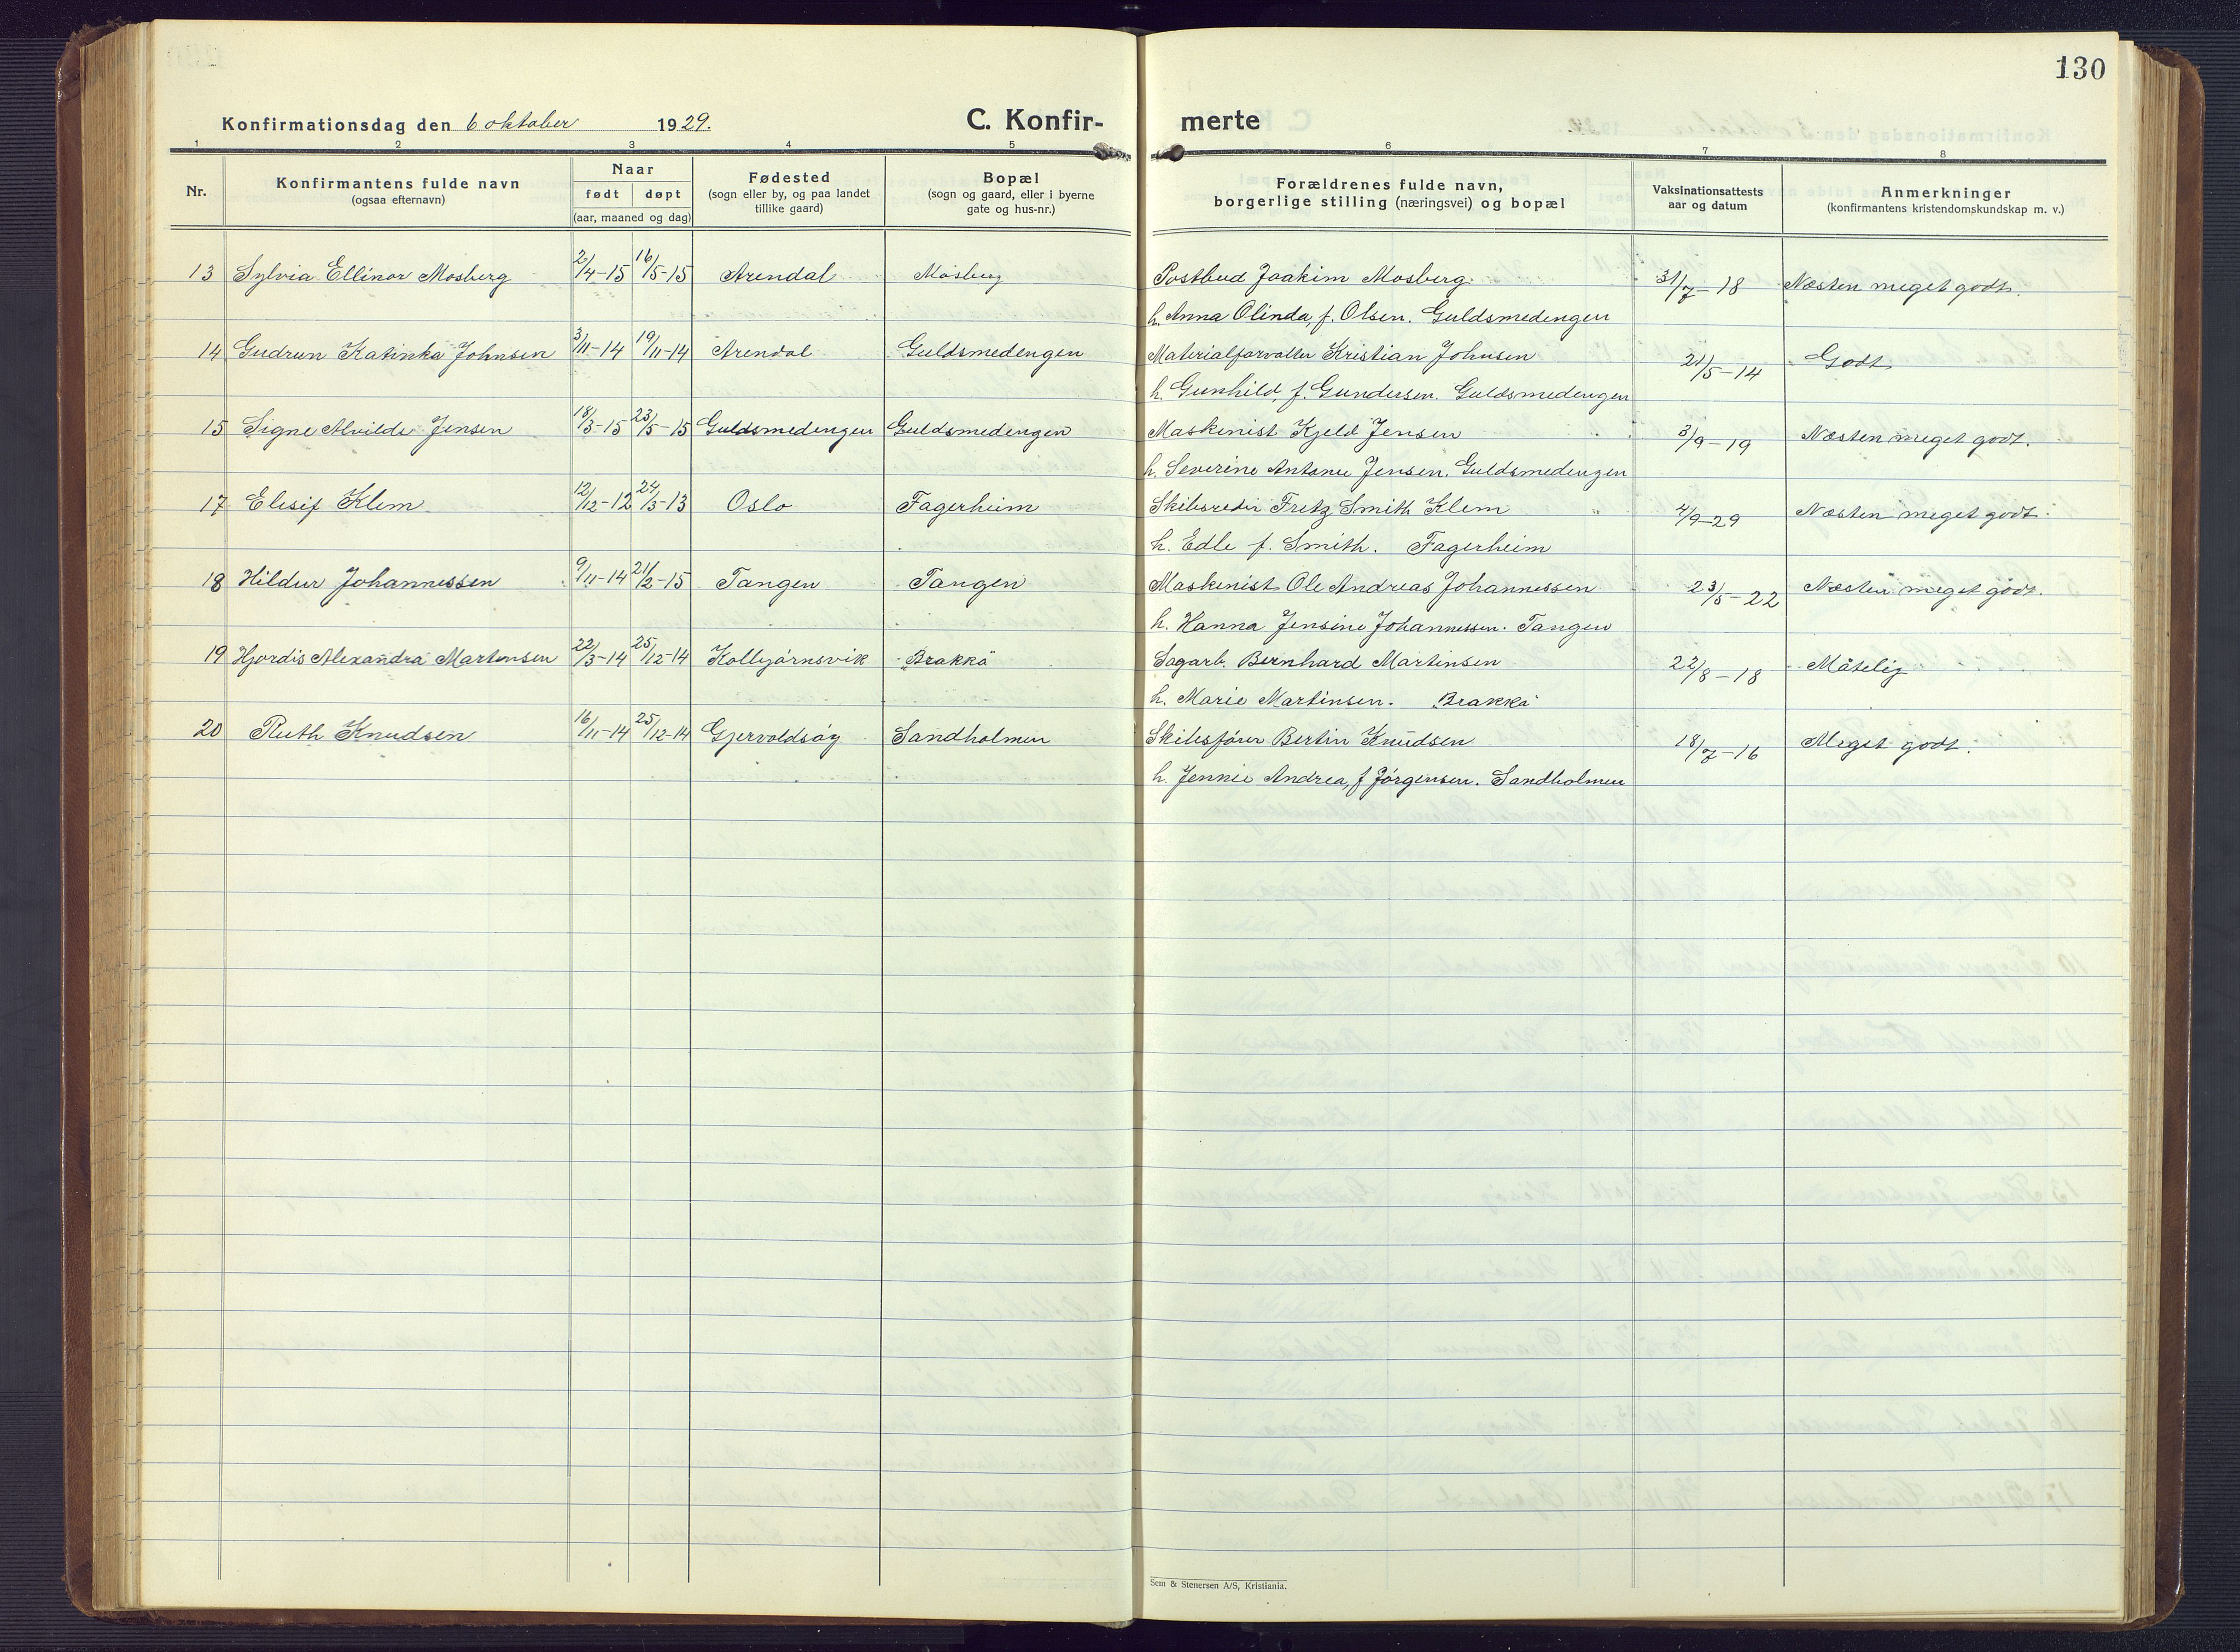 130
Konfirmationsdag den 6 oktober 1929. C. Konfir- merte
1 2 3 4 5 6 7 8
Nr. Konfirmantens fulde navn (ogsaa efternavn) Naar født døpt (aar, maaned og dag) Fødested (sogn eller by, og paa landet tillike gaard) Bopæl (sogn og gaard, eller i byerne gate og hus-nr.) Forældrenes fulde navn, borgerlige stilling (næringsvei) og bopæl Vaksinationsattests aar og datum Anmerkninger (konfirmantens kristendomskundskap m. v.)
13 Sylvia Ellinor Mosberg 2/4-15 16/5-15 Arendal Mosberg Postbud Joakim Mosberg 31/7-18 Næsten meget godt.
h. Anna Olinda, f. Olsen. Guldsmedengen
14 Gudrun Katinka Johnsen 3/11-14 19/11-14 Arendal Guldsmedengen Materialforvalter Kristian Johnsen 21/5-14 Godt
h. Gunhild, f. Gundersen. Guldsmedengen
15 Signe Alvilde Jensen 18/3-15 23/5-15 Guldsmedengen Guldsmedengen Maskinist Kjeld Jensen 3/9-19 Næsten meget godt.
h. Severine Antonie Jensen. Guldsmedengen
17 Elesif Klem 12/12-12 24/3-13 Oslo Fagerheim Skibsreder Fretz Smith Klem 4/9-29 Næsten meget godt.
h. Edle f. Smith. Fagerheim
18 Hildur Johannessen 9/11-14 21/2-15 Tangen Tangen Maskinist Ole Andreas Johannessen 23/5-22 Næsten meget godt.
h. Hanna Jensine Johannessen. Tangen
19 Hjordis Alexandra Martensen 22/3-14 25/12-14 Kolbjørnsvik Brakkå Sagarb. Bernhard Martinsen 22/8-18 Måtelig
h. Marie Martinsen. Brakkå
20 Ruth Knudsen 16/11-14 25/12-14 Gjervoldsøy Sandholmen Skibsfører Bertin Knudsen 18/7-16 Meget godt.
h. Jennie Andrea, f Jørgensen. Sandholmen
Sem & Stenersen A/S, Kristiania.